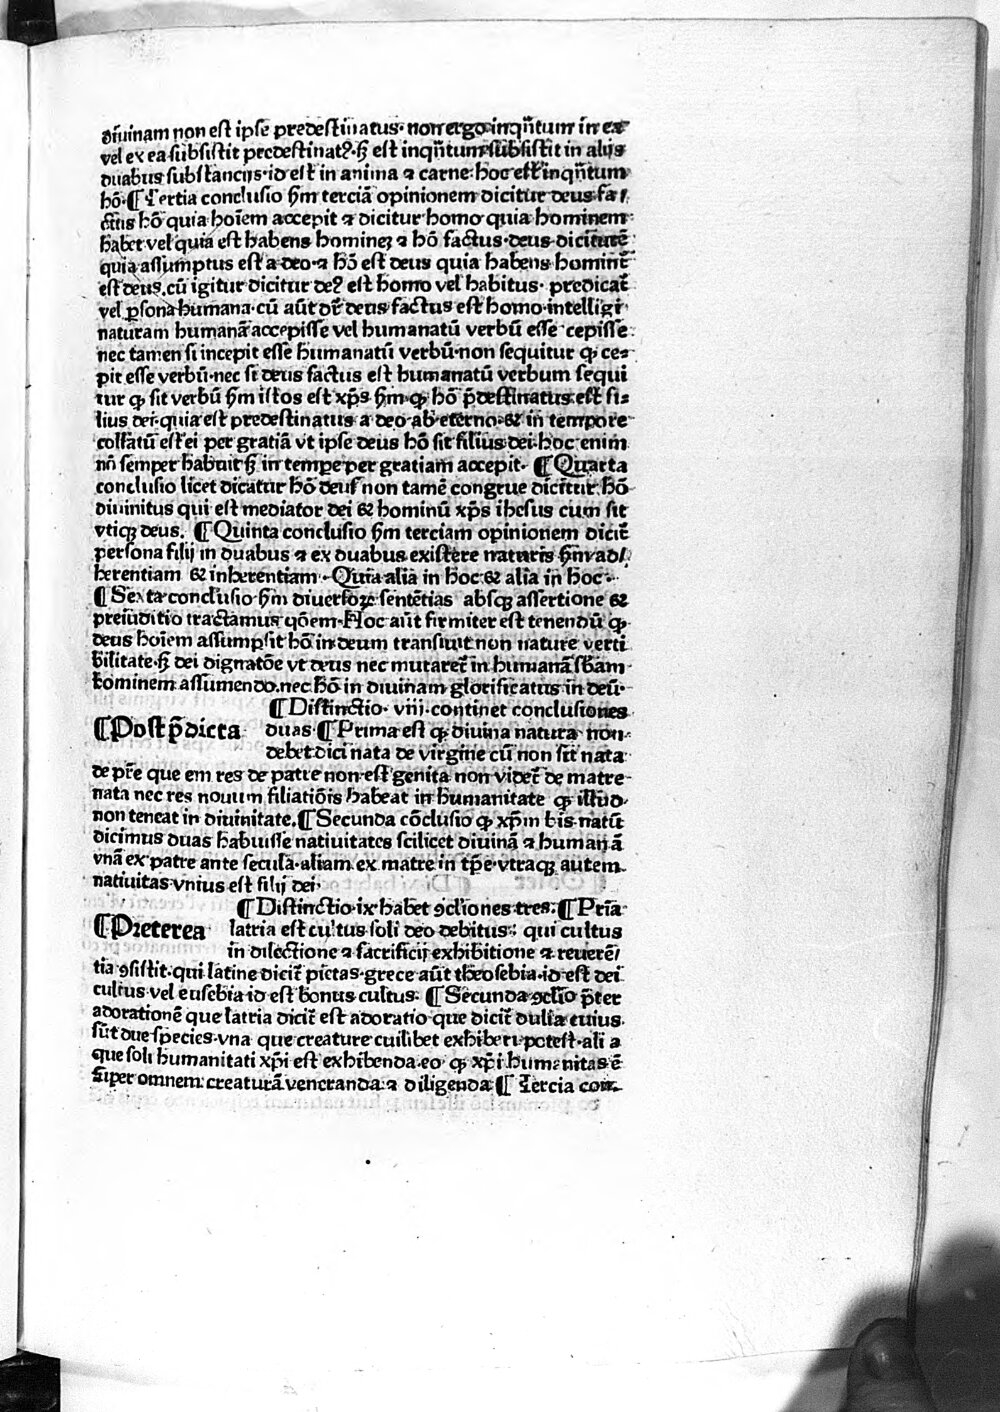 diuinam non est ipse predestinatus· non ergo inqñtum in ea
vel ex ea subsistit predestinatꝰ· sȝ est inqñtum subsistit in alijs
duabus substancijs·id est in anima ⁊ carne·hoc est inqñtum
hõ·¶Tertia conclusio ẜm terciã opinionem dicitur deus fa/
ctus hõ quia hoĩem accepit ⁊ dicitur homo quia hominem
habet vel quia est habens hominez ⁊ hõ factus·deus dicitur
quia assumptus est a deo·⁊ hõ est deus quia habens hominẽ
est deus.cũ igitur dicitur deꝰ est homo vel habitus· predicat̃
vel ꝑsona humana·cũ aũt dr̃ deus factus est homo·intelligi·
naturam humanã accepisse vel humanatũ verbũ esse cepisse·
nec tamen si incepit esse humanatũ verbũ·non sequitur ꝙ ce-
pit esse verbũ·nec si deus factus est humanatũ verbum sequi
tur ꝙ sit verbũ ẜm istos est xp̃s ẜm·ꝙ hõ p̃destinatus est fi-
lius dei·quia est predestinatus a deo·ab eterno·⁊ in tempore
collatũ est ei per gratiã vt ipse deus hõ sit filius dei·hoc enim
nõ semper habuit sȝ in tempe per gratiam accepit· ¶Quarta
conclusio licet dicatur hõ deus non tamẽ congrue dicitur hõ
diuinitus qui est mediator dei ⁊ hominũ xp̃s ihesus cum sit
vtiqȝ deus. ¶Quinta conclusio ẜm terciam opinionem dicit̃
persona filij in duabus ⁊ ex duabus existere naturis ẜm ad/
herentiam ⁊ inherentiam·Quia alia in hoc ⁊ alia in hoc·
¶Sexta conclusio ẜm diuersoꝝ sentẽtias absqȝ assertione ⁊
preiuditio tractamus qõem·Hoc aũt firmiter est tenendũ ꝙ
deus hoĩem assumpsit hõ in deum transiuit non nature verti
bilitate·sȝ dei dignatõe vt deus nec mutaret̃ in humanã sbãm·
hominem assumendo.nec hõ in diuinam glorificatus in deũ·
¶Distinctio· viij·continet conclusiones
¶Post p̃dicta duas·¶Prima est ꝙ diuina natura non·
debet dici nata de virgine cũ non sit nata
de pr̃e que em res de patre non est genita non videt̃ de matre·
nata nec res nouum filiatiõis habeat in humanitate ꝙ illud·
non teneat in diuinitate.¶Secunda cõclusio ꝙ xp̃m bis natũ
dicimus duas habuisse natiuitates scilicet diuinã ⁊ humanã
vnã ex patre ante secula·aliam ex matre in tp̃e·vtraqȝ autem
natiuitas vnius est filij dei·
¶Distinctio·ix·habet ꝯcl̃iones tres.¶Pria
¶Preterea latria est cultus soli deo debitus: qui cultus
in dilectione ⁊ sacrificij exhibitione ⁊ reuerẽ/
tia ꝯsistit·qui latine dicit̃ pietas·grece aũt theosebia·id est dei
cultus vel eusebia·id est bonus cultus· ¶Secunda ꝯcl̃io p̃ter
adorationẽ que latria dicit̃ est adoratio que dicit̃ dulia cuius
sũt due species·vna que creature cuilibet exhiberi potest·ali a
que soli humanitati xp̃i est exhibenda·eo· ꝙ xp̃i humanitas ẽ
super omnem creaturã veneranda ⁊ diligenda ¶Tercia con-